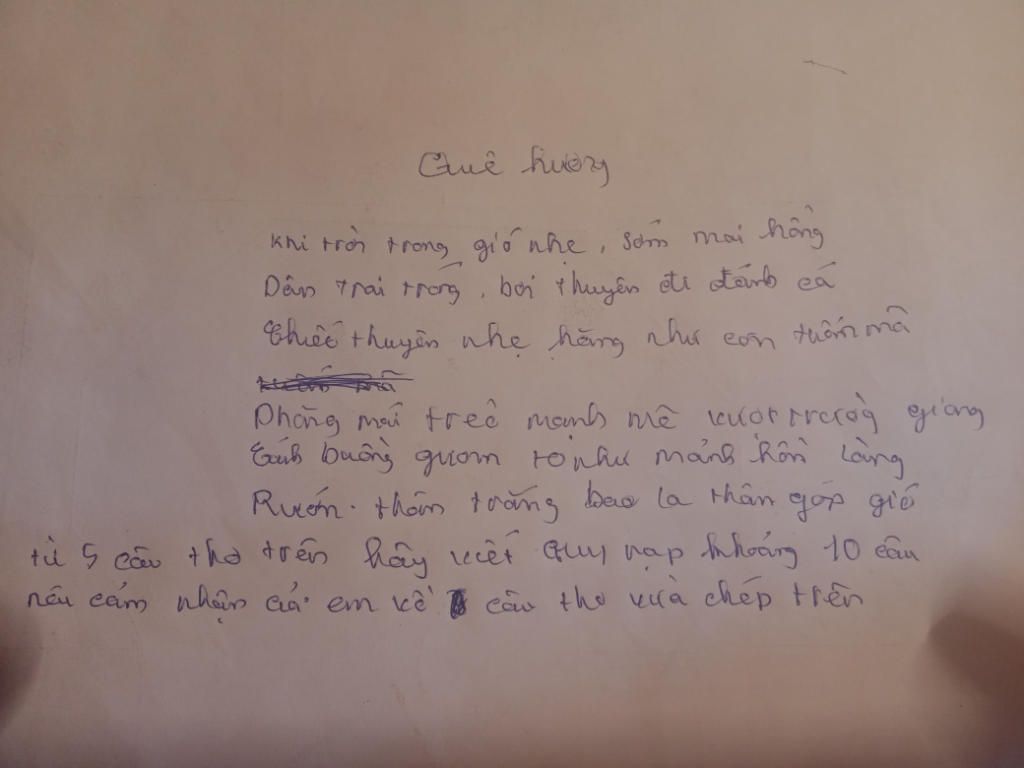 Quê hương
Khi trời trong gió nhẹ, sớm mai hồng
Dân trai tráng, bơi thuyền đi đánh cá
Chiếc thuyền nhẹ hăng như con tuấn mã
Phăng mái treć mạnh mẽ vượt trường giang
Cánh buồng gươm to như mảnh hồn làng
Rướn thân trắng bao la thân góp gió
từ 5 câu thơ trên hãy viết quy nạp khoảng 10 câu
nêu cảm nhận của em về câu thơ vừa chép trên